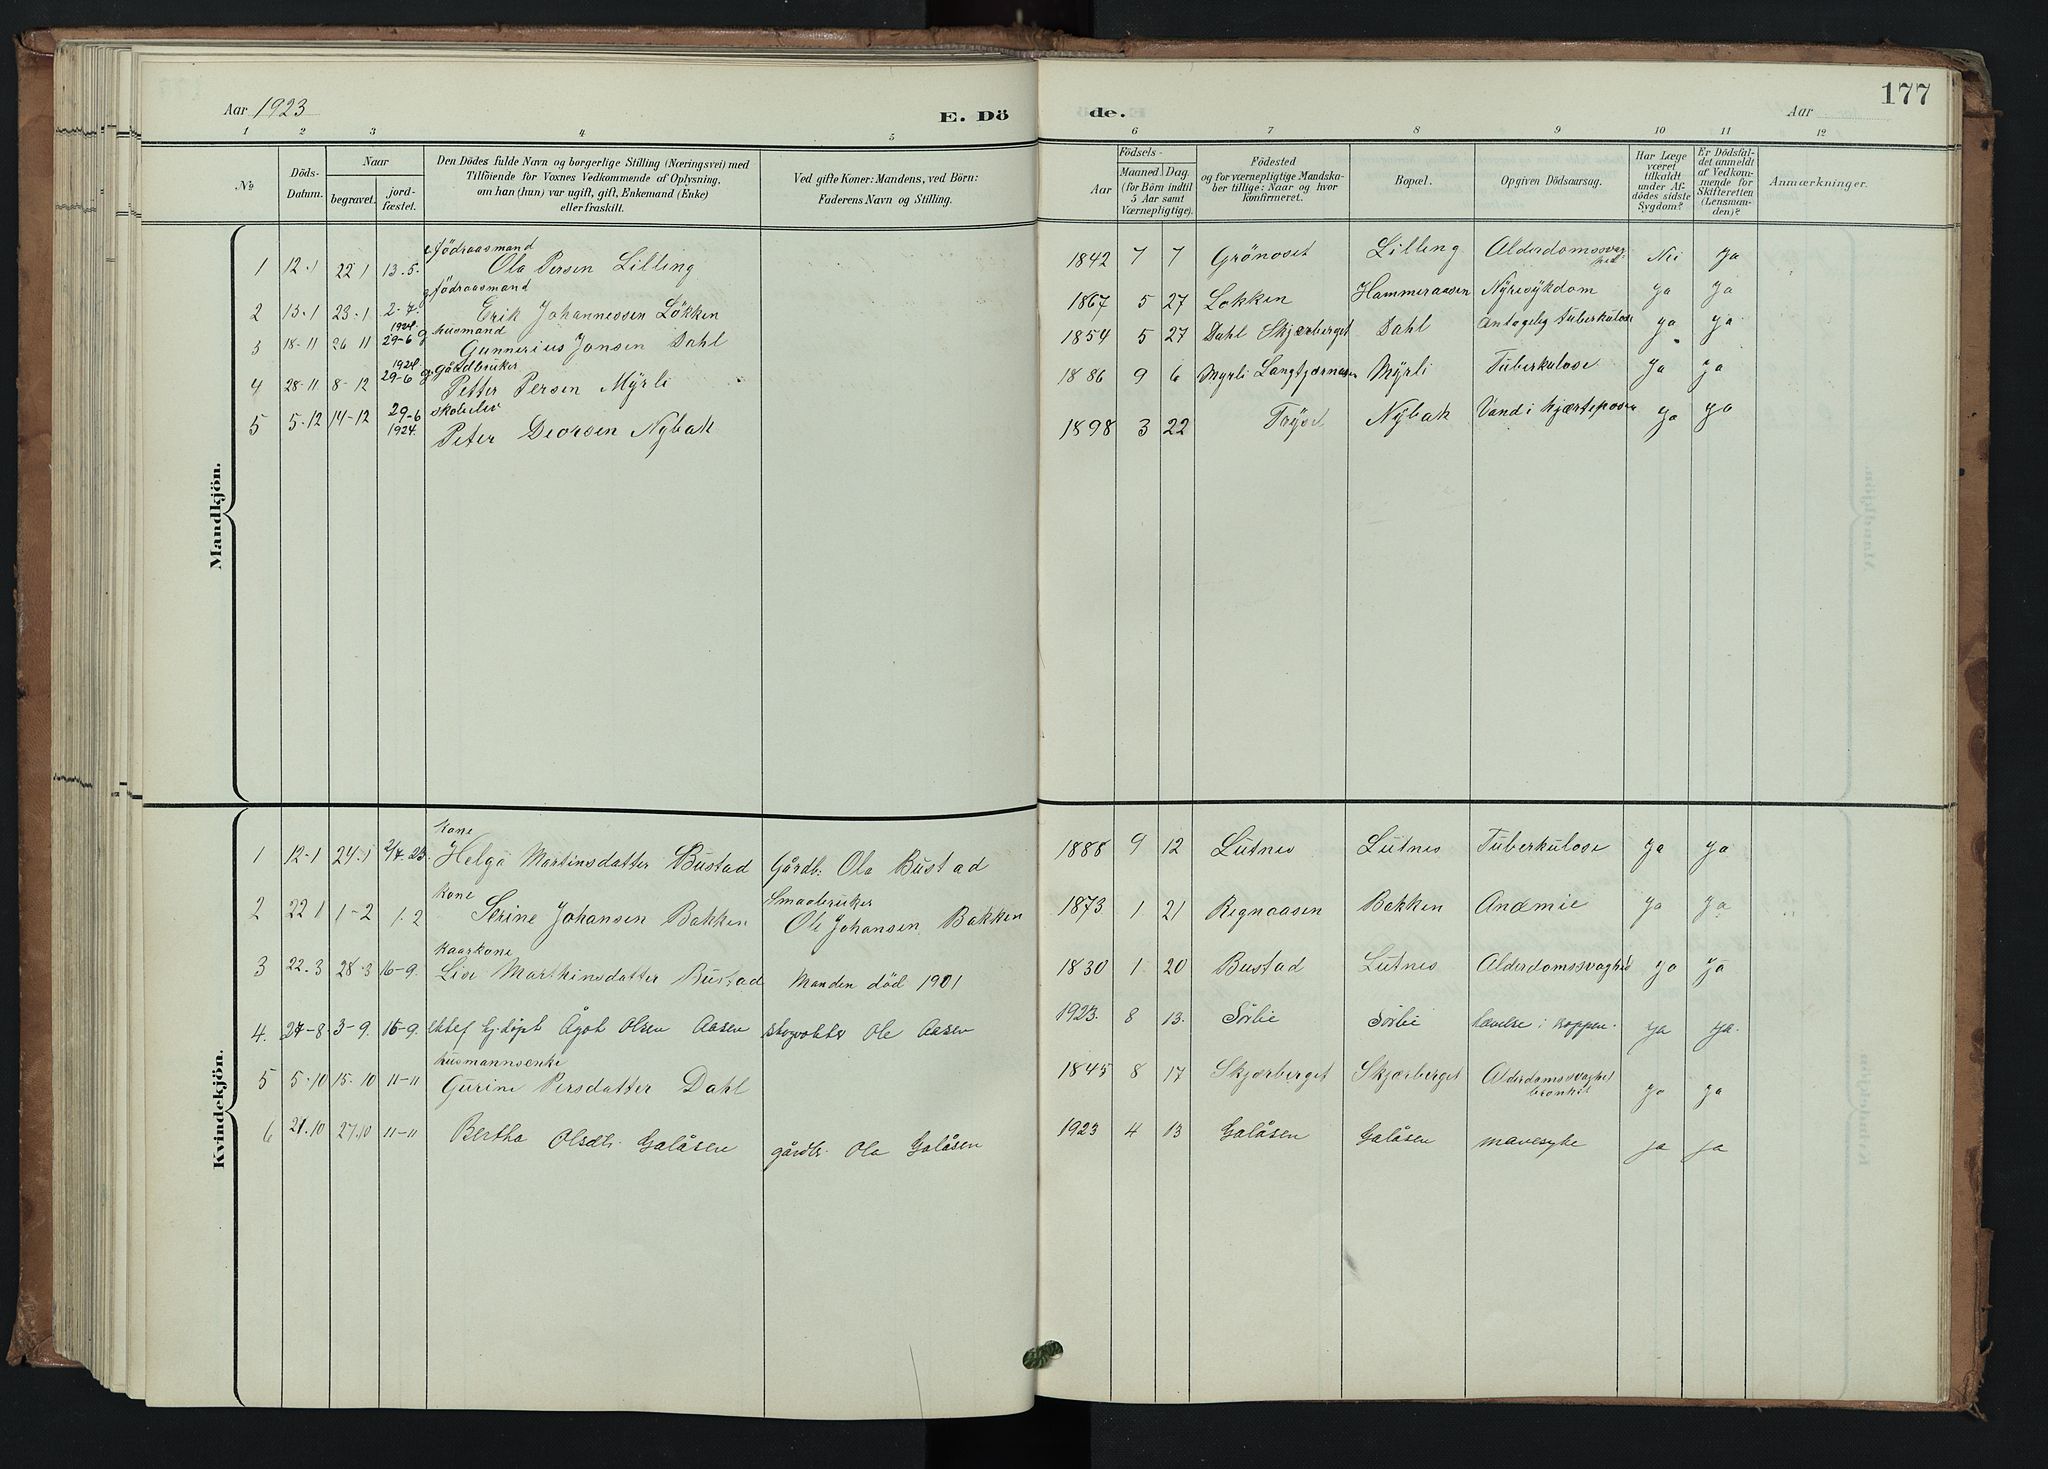 Aar 1923
E. Dö
de.
Aar
177
1 2 3 4 5 6 7 8 9 10 11 12
No
Döds-Datum.
Naar
begravet.
jord-fæstet.
Den Dödes fulde Navn og borgerlige Stilling (Næringsvei) med
Tilföiende for Voxnes Vedkommende af Oplysning,
om han (hun) var ugift, gift, Enkemand (Enke)
eller fraskilt.
Ved gifte Koner: Mandens, ved Börn:
Faderens Navn og Stilling.
Födsels-
Aar
Maaned Dag.
(for Börn indtil
5 Aar samt
Værnepligtige).
Födested
og for værnepligtige Mandska-
ber tillige: Naar og hvor
konfirmeret.
Bopæl.
Opgiven Dödsaarsag.
Har Læge
været
tilkaldt
under Af-
dödes sidste
Sygdom?
Er Dödsfal-
det anmeldt
af Vedkom-
mende for
Skifteretten
(Lensman-
den)?
Anmærkninger.
Mandkjön.
födraasmand
1 12-1 22 1 13.5. Ola Persen Lilleng 1842 7 7 Grönoset Lilleng Alderdomssvaghed Nei Ja
födraasmand
2 13-1 23-1 2-7. Erik Johannessen Lökken 1867 5 27 Lokken Hammeraasen Nyresykdom Ja Ja
husmand
3 18-11 26 11 1924 29-6 g Gunnerius Jonsen Dahl 1854 5 27 Dahl Skjærberget Dahl Antagelig Tuberkulose Ja Ja
gårdbruker
4 28-11 8-12 1924 29-6 g Petter Persen Myrli 1886 9 6 Myrli Langtjernåsen Myrli Tuberkulose Ja Ja
skoelev
5 5-12 14-12 29-6 1924. Peter Deorsen Nybak 1898 3 22 Trysil Nybak Vand i hjærteposen Ja Ja
Kvindekjön.
Kone
1 12-1 24-1 2/7.23. Helga Martinsdatter Bustad Gårdb. Ola Bustad 1888 9 12 Lutnes Lutnes Tuberkulose Ja Ja
Kone Smaabruker
2 22 1 1-2 1.2 Serine Johansen Bakken Ole Johansen Bakken 1873 1 21 Regnaasen Bakken Anæmie Ja Ja
Kaarkone
3 22-3 28-3 16-9. Lise Marthinsdatter Bustad Manden död 1901 1830 1 20 Bustad Lutnes Alderdomssvaghed Ja Ja
4. 27-8 3-9. 16-9. ektef. Ej döpt Ågot Olsen Aasen Ole Aasen 1923. 8 13. Sørlie Sørlie hævelse i kroppen. Ja Ja.
husmannsenke
5 5-10 15-10 11-11 Gurine Persdatter Dahl 1845 8 17 Skjærberget Skjærberget Alderdomssvaghet bronkit Ja Ja
6 21.10 27.10 11-11 Bertha Olsdtr. Galåsen gårdbr. Ola Galåsen 1923 4 13 Galåsen Galåsen mavesyke Ja Ja